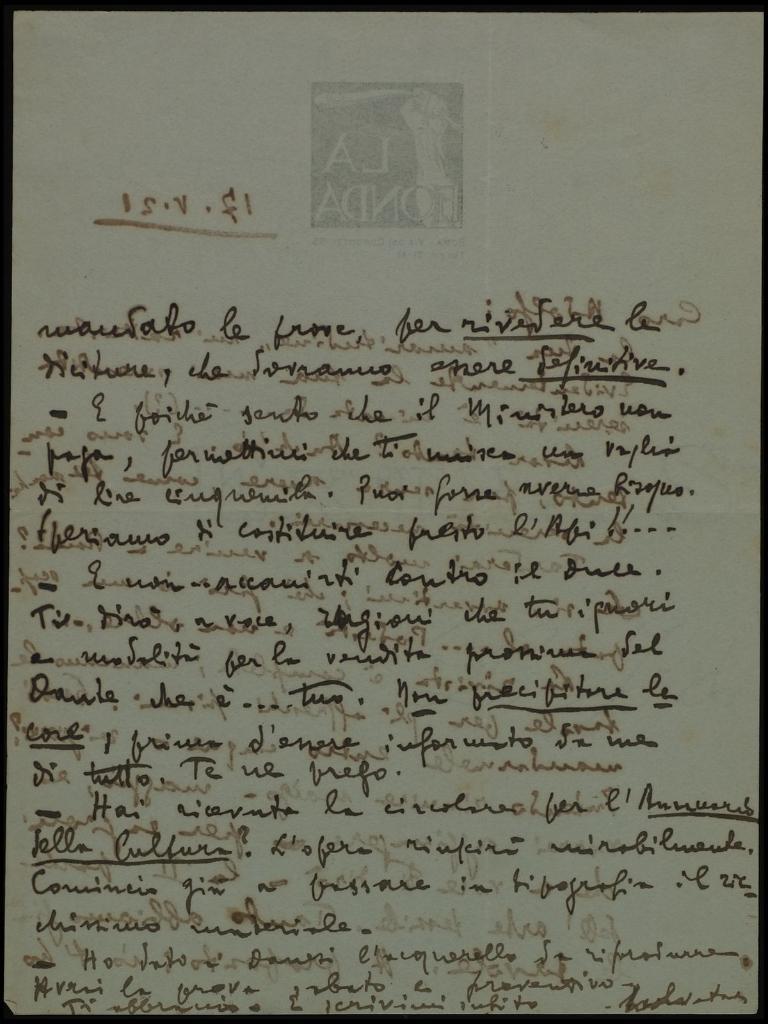 mandato le prove, per rivedere le
diciture, che dovranno essere definitive.
- E poichè sento che il Ministero non
paga, permettimi che ti unisca un vaglia
di lire cinquemila. Puoi forse averne bisogno.
Speriamo di costituire presto l'Api!! ---
- E non accanirti contro il Duce.
Ti dirò, a voce, ragioni che tu ignori
e modalità per la vendita prossima del
Dante che è .... tuo. Non precipitare le
cose, prima d'essere informato da me
di tutto. Te ne prego.
- Hai ricevuta la circolare per l'Annuario
della Cultura? L'opera riuscirà mirabilmente.
Comincio già a passare in tipografia il ric-
chissimo materiale.
- Ho dato a Danesi l'acquerello da riprodurre.
Avrai la prova sabato e preventivo.
Ti abbraccio. E scrivimi subito